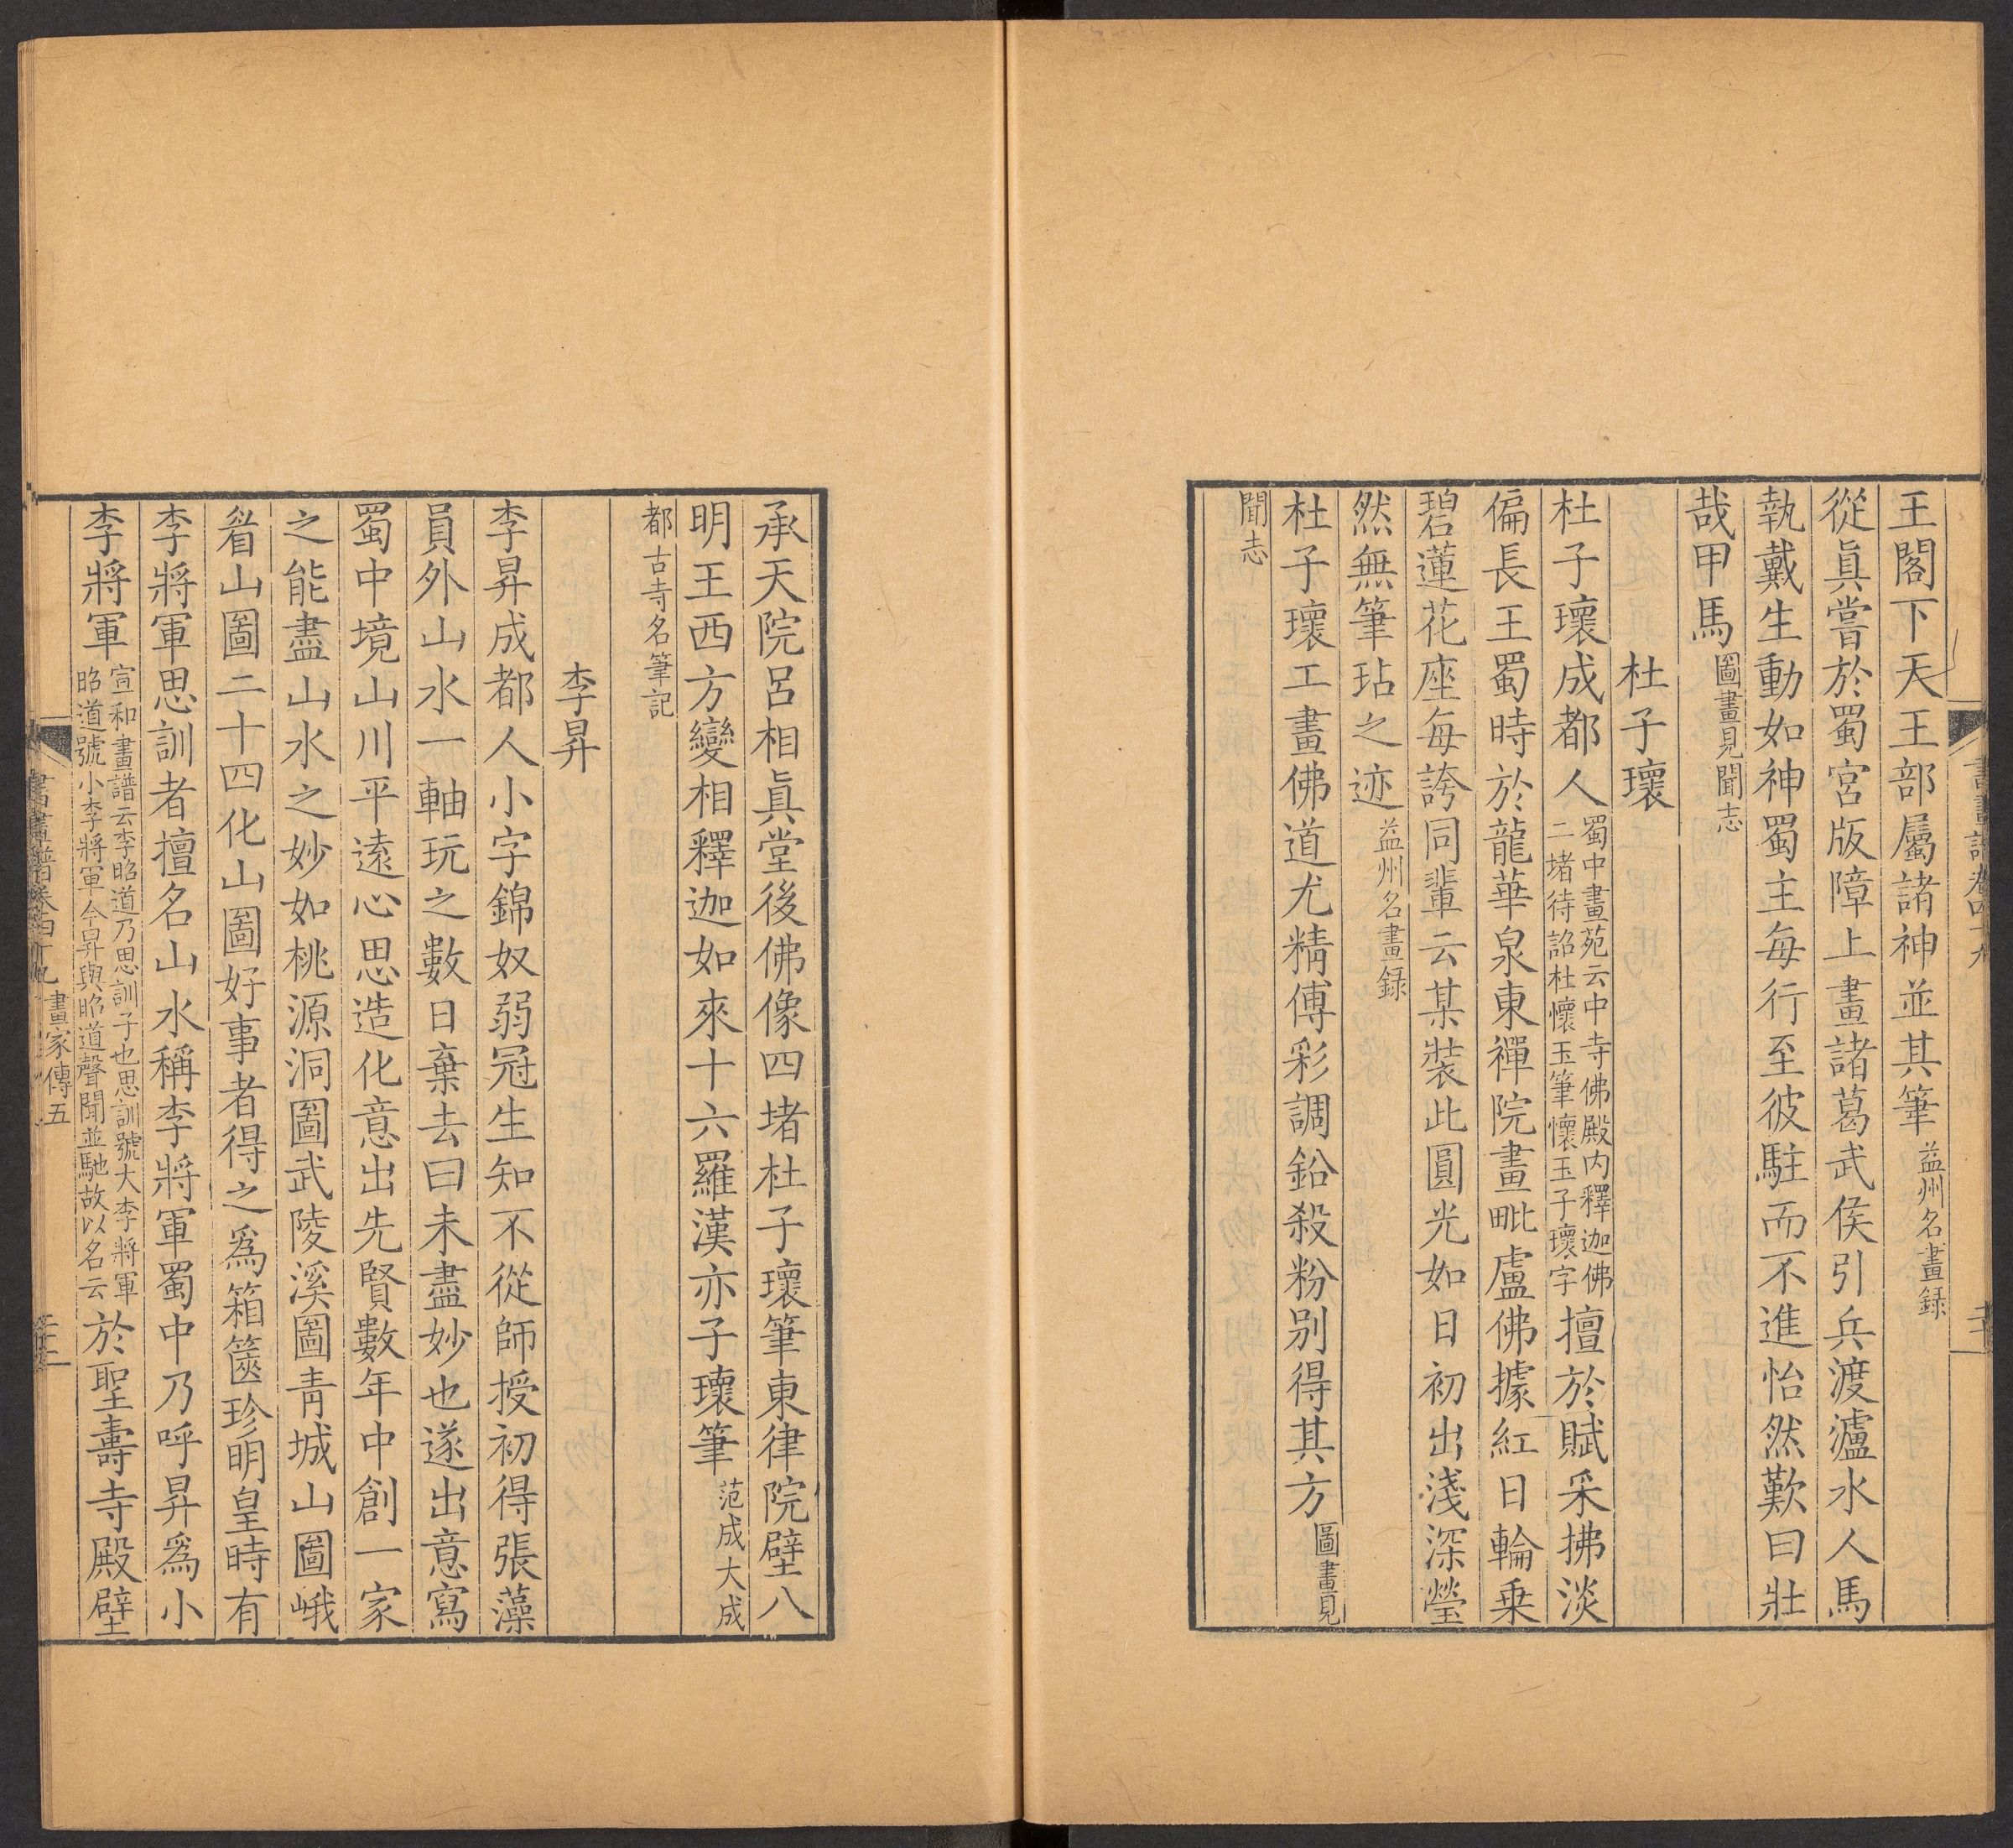 王閣下天王部屬諸神並其筆益州名畫録
從眞嘗於蜀宮版障上畫諸葛武侯引兵渡瀘水人馬
執戴生動如神蜀主每行至彼駐而不進怡然歎曰壯
哉甲馬圖畫見聞志
杜子瓌
杜子瓌成都人蜀中畫苑云中寺佛殿内釋迦佛
二堵待詔杜懷玉筆懷玉子瓌字擅於賦采拂淡
偏長王蜀時於龍華泉東禪院畫毗盧佛據紅日輪乗
碧蓮花座每誇同輩云某裝此圓光如日初出淺深瑩
然無筆玷之迹益州名畫録
杜子瓌工畫佛道尤精傅彩調鉛殺粉别得其方圖畫見
聞志
承天院呂相眞堂後佛像四堵杜子瓌筆東律院壁八
明王西方變相釋迦如來十六羅漢亦子瓌筆范成大成
都古寺名筆記
李昇
李昇成都人小字錦奴弱冠生知不從師授初得張藻
員外山水一軸玩之數日棄去曰未盡妙也遂出意寫
蜀中境山川平遠心思造化意出先賢數年中創一家
之能盡山水之妙如桃源洞圖武陵溪圖青城山圖峨
眉山圖二十四化山圖好事者得之爲箱篋珍明皇時有
李將軍思訓者擅名山水稱李將軍蜀中乃呼昇爲小
李將軍宣和畫譜云李昭道乃思訓子也思訓號大李將軍
昭道號小李將軍今昇與昭道聲聞並馳故以名云於聖壽寺殿壁
書畫譜卷四十九 畫家傳五